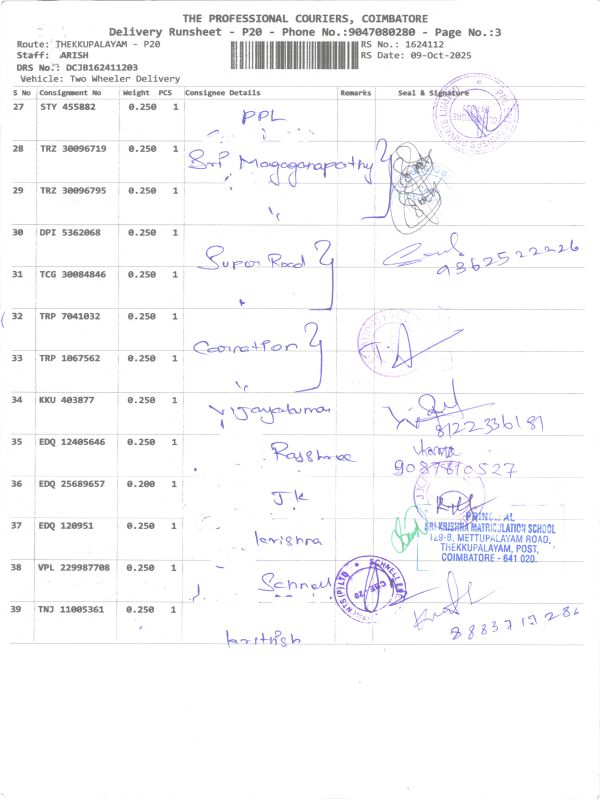 THE PROFESSIONAL COURIERS, COIMBATORE
Delivery Runsheet - P20 - Phone No.:9047080280 - Page No.:3
Route: THEKKUPALAYAM - P20 RS No.: 1624112
Staff: ARISH RS Date: 09-Oct-2025
DRS No.: DCJB162411203
Vehicle: Two Wheeler Delivery
S No Consignment No Weight PCS Consignee Details Remarks Seal & Signature
27 STY 455882 0.250 1 PPL
28 TRZ 30096719 0.250 1 Sri Magaganapathy
29 TRZ 30096795 0.250 1
30 DPI 5362068 0.250 1 Super Road
9362522226
31 TCG 30084846 0.250 1
32 TRP 7041032 0.250 1 Coonation
33 TRP 1067562 0.250 1
34 KKU 403877 0.250 1 Vijayakumar
8122336181
35 EDQ 12405646 0.250 1 Rajshree
9087610527
36 EDQ 25689657 0.200 1 JK
37 EDQ 120951 0.250 1 krishna
PRINCIPAL
SRI KRISHNA MATRICULATION SCHOOL
129-B, METTUPALAYAM ROAD,
THEKKUPALAYAM, POST,
COIMBATORE - 641 020.
38 VPL 229987708 0.250 1 Schnell
SCHNELL
CBE-29
39 TNJ 11005361 0.250 1 krithish